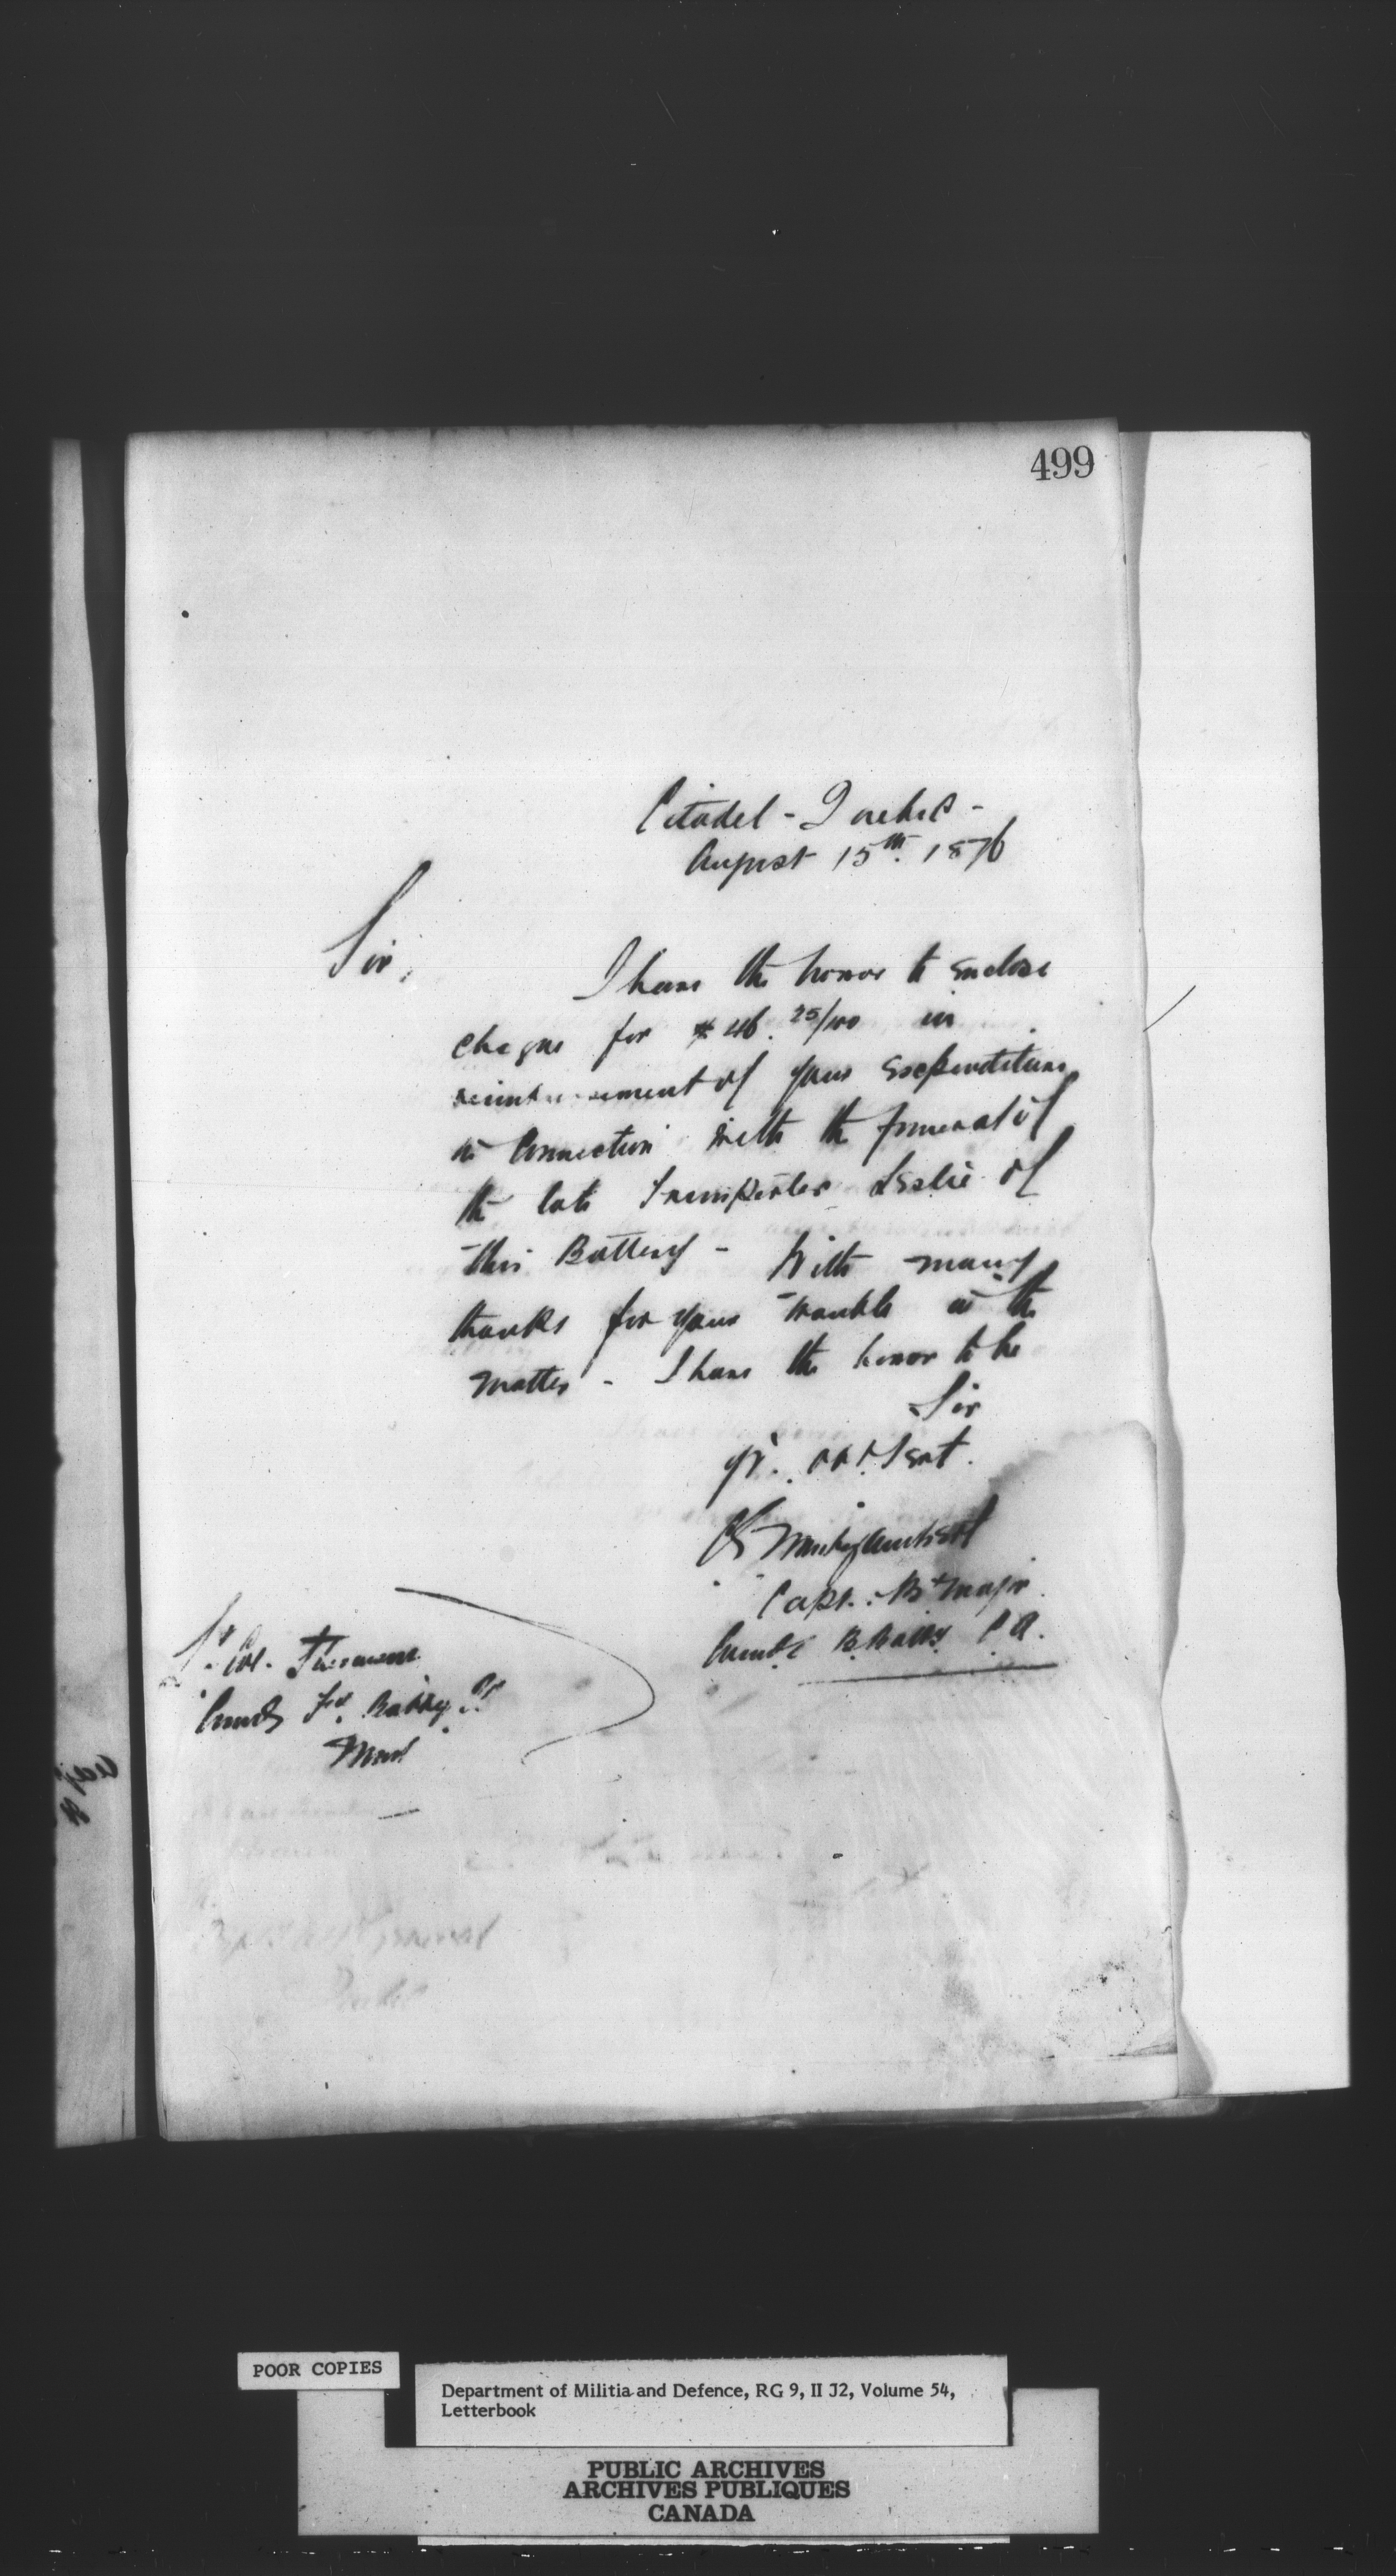 499
Citadel - Quebec -
August 15th. 1876
Sir,
I have the honor to enclose
cheque for $46. 25/100 in
reimbursement of your expenditure
in connection with the funeral of
the late Trumpeter Leslie of
this Battery - With many
thanks for your trouble in the
matter - I have the honor to be
Sir
yr. obt Servt.
Capt. : Bt Major
Comdg B. Batty C.A.
Lt. Col.
Comdg Fd. Battery
POOR COPIES
Department of Militia and Defence, RG 9, II J2, Volume 54,
Letterbook
PUBLIC ARCHIVES
ARCHIVES PUBLIQUES
CANADA